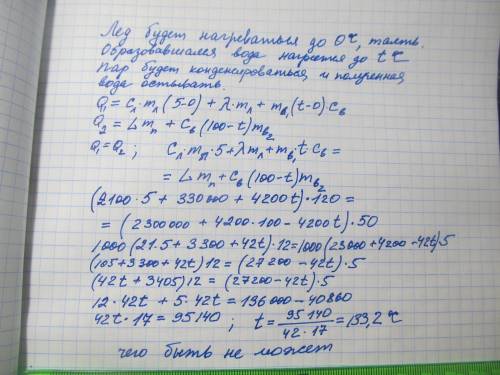 Лед будет нагреваться до 0°C, таять.
Образовавшаяся вода нагреется до t°C
Пар будет конденсироваться, и полученная
вода остывать.
Q₁ = Cл·mл(5-0) + λ·mл + mв₁(t-0)Cв
Q₂ = Lmп + Cв(100-t)mв₂
Q₁=Q₂ ; Cл·mл·5 + λmл + mв₁tCв =
= Lmп + Cв(100-t)mв₂
(2100·5 + 330000 + 4200t)·120 =
= (2300000 + 4200·100 - 4200t)·50
1000(21·5 + 3300 + 42t)·12 = 1000(23000 + 4200 - 42t)5
(105 + 3300 + 42t)12 = (27200 - 42t)·5
(42t + 3405)12 = (27200 - 42t)·5
12·42t + 5·42t = 136000 - 40860
42t·17 = 95140 ; t = 95140/42·17 = 133,2°C
чего быть не может